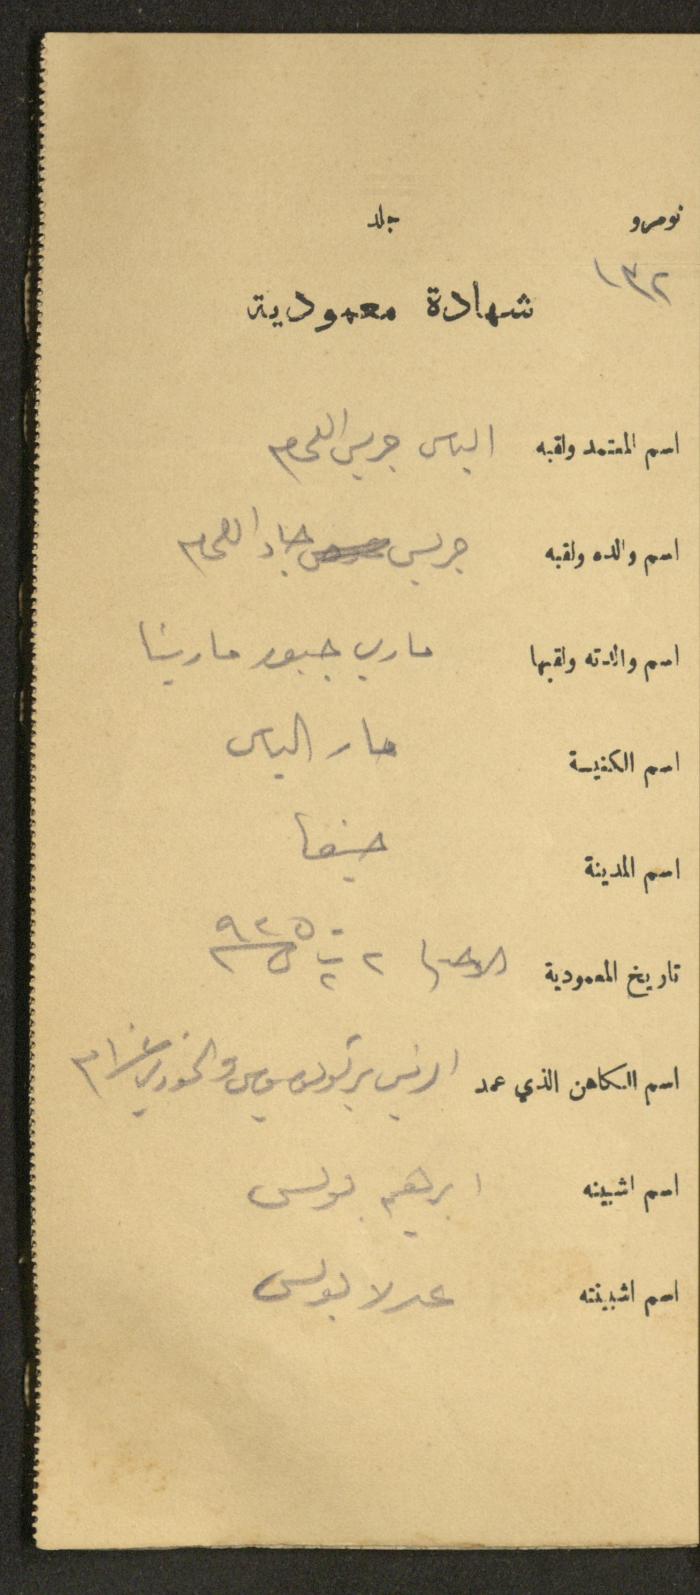 نومرو جلد
١٣٢
شهادة معمودية
اسم المعتمد ولقبه الياس جريس اللحام
اسم والده ولقبه جريس جاد اللحام
اسم والدته ولقبها ماري جبور مارينا
اسم الكنيسة مار الياس
اسم المدينة حيفا
تاريخ المعمودية الاحد ٢ ت٢ ٩٣٥
اسم الكاهن الذي عمد والخوري
اسم اشبينه ابرهيم بولس
اسم اشبينته عدلا بولس